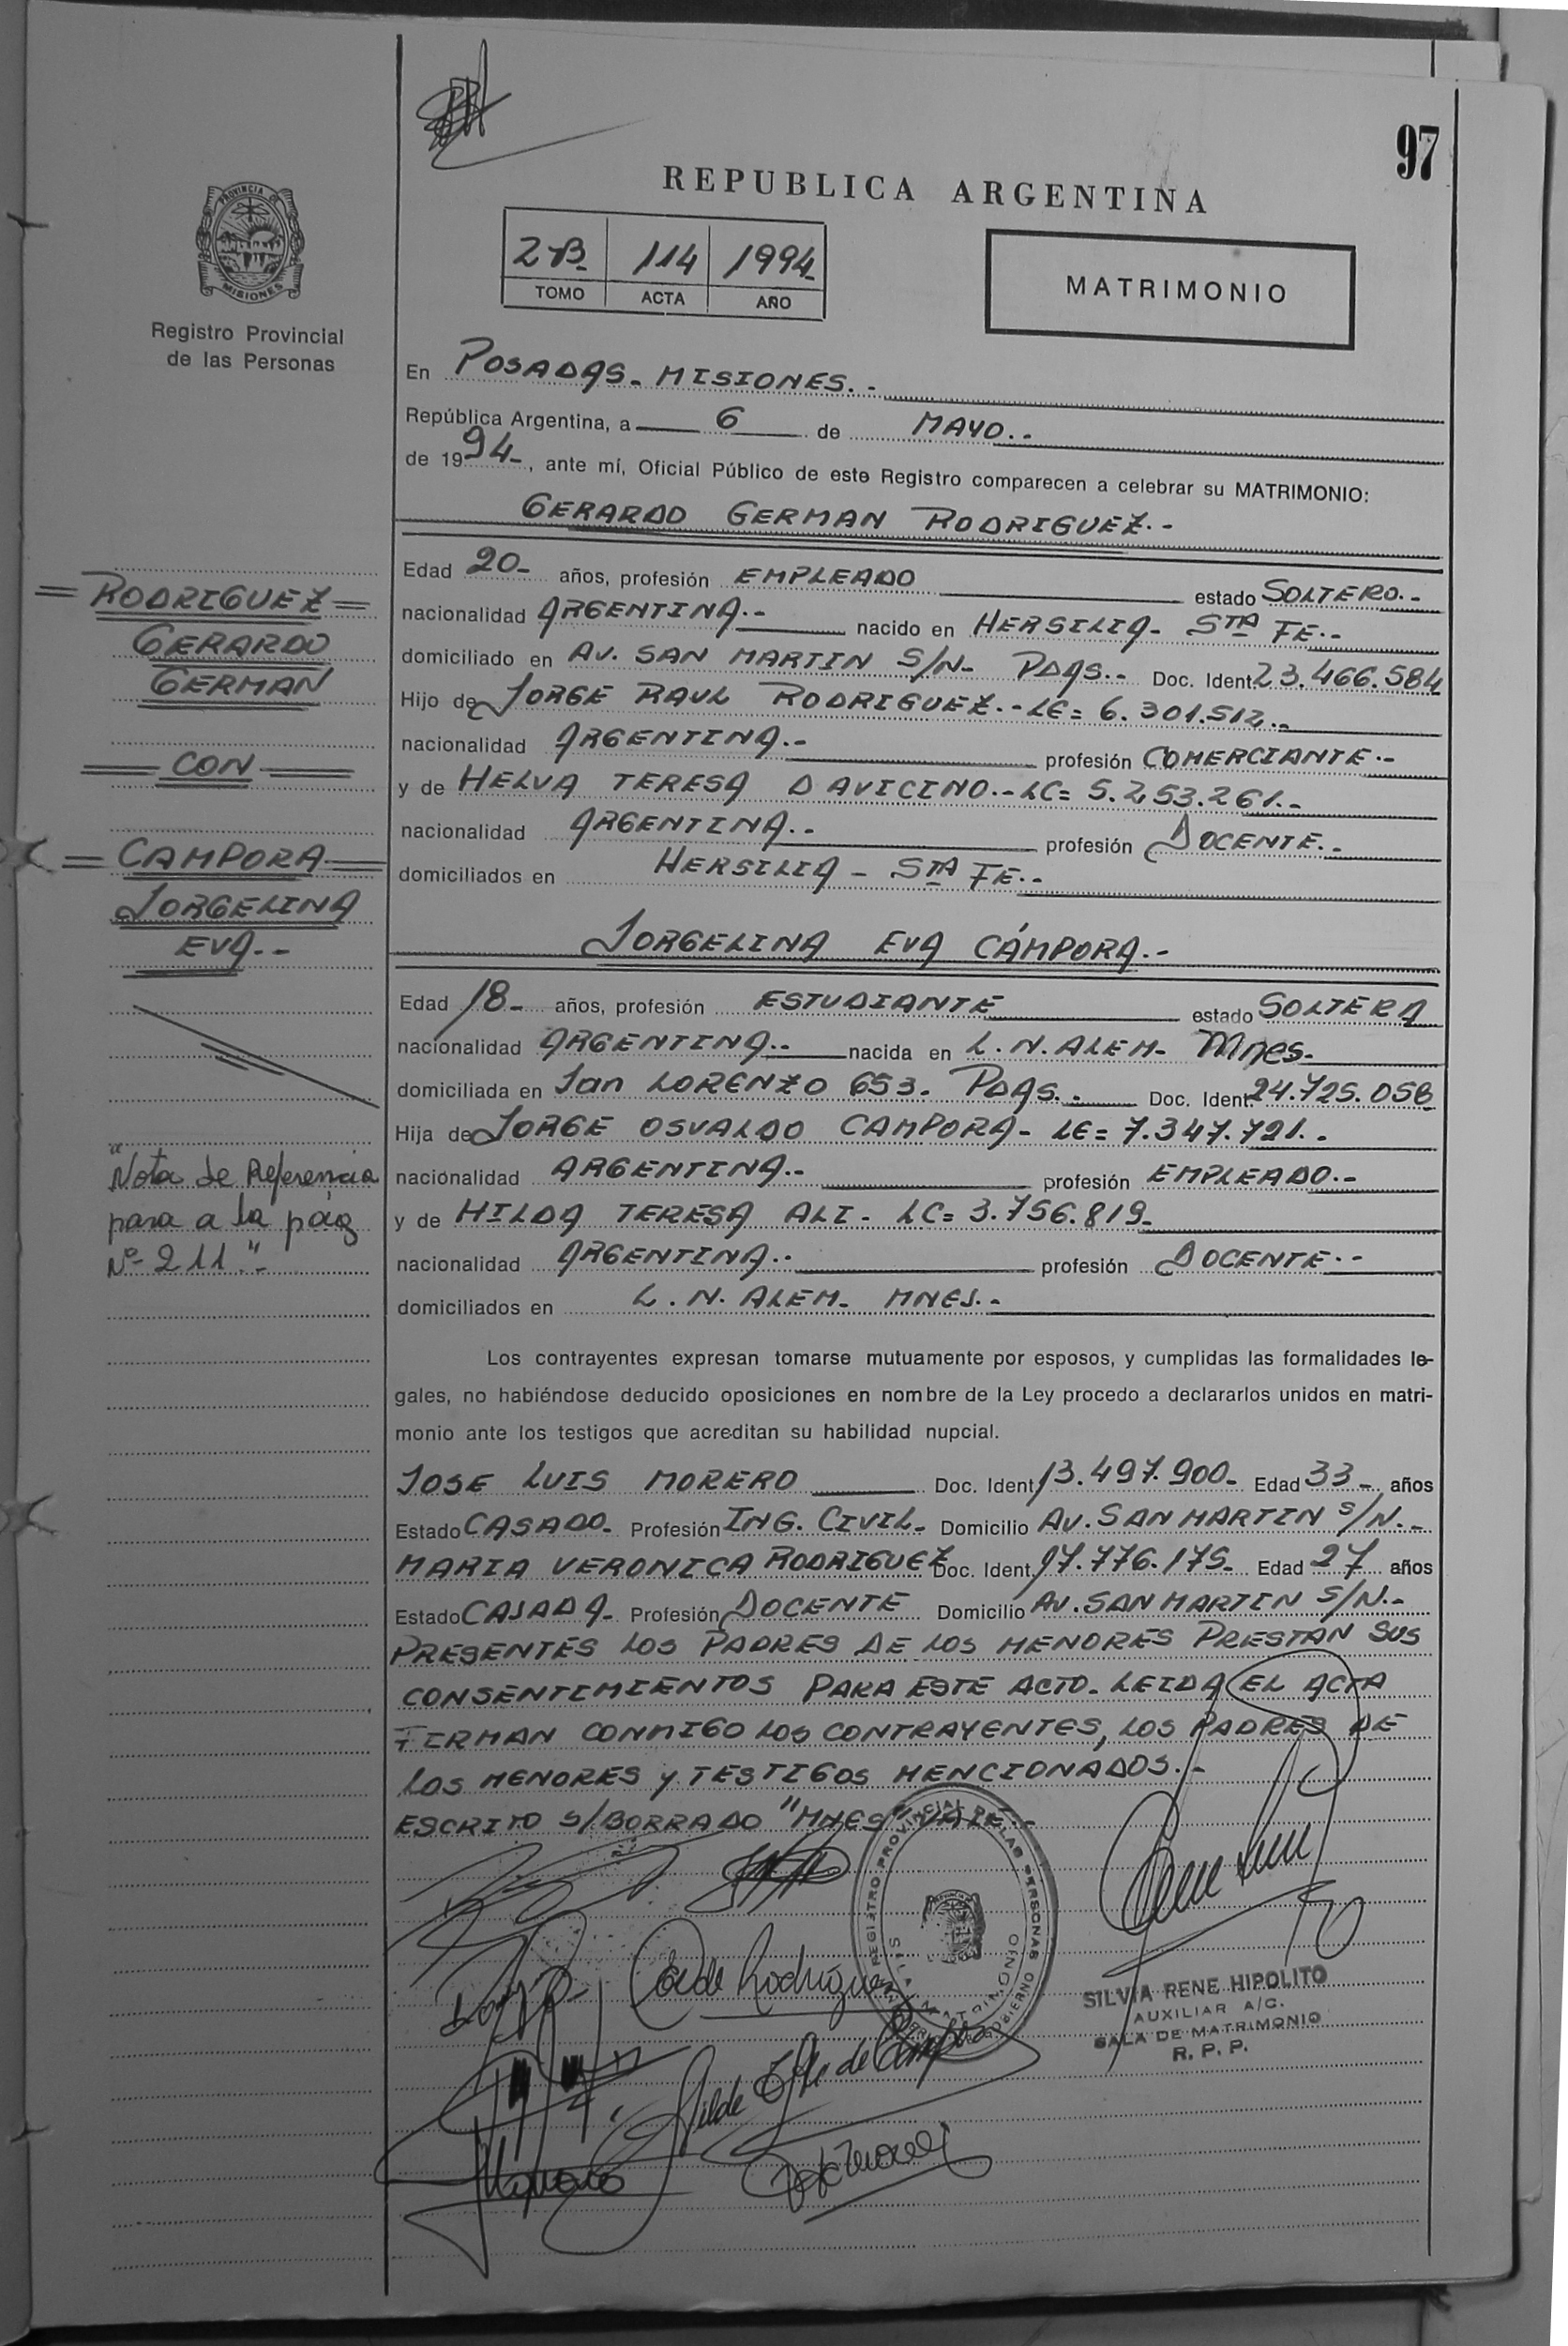 97
REPUBLICA ARGENTINA
PROVINCIA DE
MISIONES
Registro Provincial
de las Personas
2-B- 114 1994-
TOMO ACTA AÑO
MATRIMONIO
En POSADAS- MISIONES.-
República Argentina, a 6 de MAYO.-
de 1994-, ante mí, Oficial Público de este Registro comparecen a celebrar su MATRIMONIO:
GERARDO GERMAN RODRIGUEZ.-
Edad 20- años, profesión EMPLEADO estado SOLTERO.-
nacionalidad ARGENTINA.- nacido en HERSILIA- STA FE.-
domiciliado en AV. SAN MARTIN S/N- PDAS.- Doc. Ident. 23.466.584
Hijo de JORGE RAUL RODRIGUEZ.-LE= 6.301.512.-
nacionalidad ARGENTINA.- profesión COMERCIANTE.-
y de HELVA TERESA DAVICINO.-LC= 5.253.261.-
nacionalidad ARGENTINA.- profesión DOCENTE.-
domiciliados en HERSILIA - STA FE.-
JORGELINA EVA CÁMPORA.-
Edad 18- años, profesión ESTUDIANTE estado SOLTERA
nacionalidad ARGENTINA.- nacida en L.N.ALEM- Mnes-
domiciliada en San LORENZO 653. PDAS.- Doc. Ident. 24.725.058
Hija de JORGE OSVALDO CAMPORA- LE= 7.347.721.-
nacionalidad ARGENTINA.- profesión EMPLEADO.-
y de HILDA TERESA ALI- LC= 3.756.819-
nacionalidad ARGENTINA.- profesión DOCENTE.-
domiciliados en L.N.ALEM- MNES.-
Los contrayentes expresan tomarse mutuamente por esposos, y cumplidas las formalidades le-
gales, no habiéndose deducido oposiciones en nombre de la Ley procedo a declararlos unidos en matri-
monio ante los testigos que acreditan su habilidad nupcial.
JOSE LUIS MORERO Doc. Ident. 13.497.900- Edad 33- años
Estado CASADO- Profesión ING. CIVIL- Domicilio AV. SAN MARTIN S/N.-
MARIA VERONICA RODRIGUEZ Doc. Ident. 17.776.175- Edad 27 años
Estado CASADA- Profesión DOCENTE Domicilio AV. SAN MARTIN S/N.-
PRESENTES LOS PADRES DE LOS MENORES PRESTAN SUS
CONSENTIMIENTOS PARA ESTE ACTO- LEIDA EL ACTA
FIRMAN CONMIGO LOS CONTRAYENTES, LOS PADRES DE
LOS MENORES y TESTIGOS MENCIONADOS.-
ESCRITO S/BORRADO "MNES" VALE.-
= RODRIGUEZ =
GERARDO
GERMAN
= CON =
= CAMPORA =
JORGELINA
EVA.-
"Nota de Referencia
para a la pág
Nº- 211."-
REGISTRO PROVINCIAL DE LAS PERSONAS
MATRIMONIO
de Rodríguez
SILVIA RENE HIPOLITO
AUXILIAR A/C.
SALA DE MATRIMONIO
R. P. P.